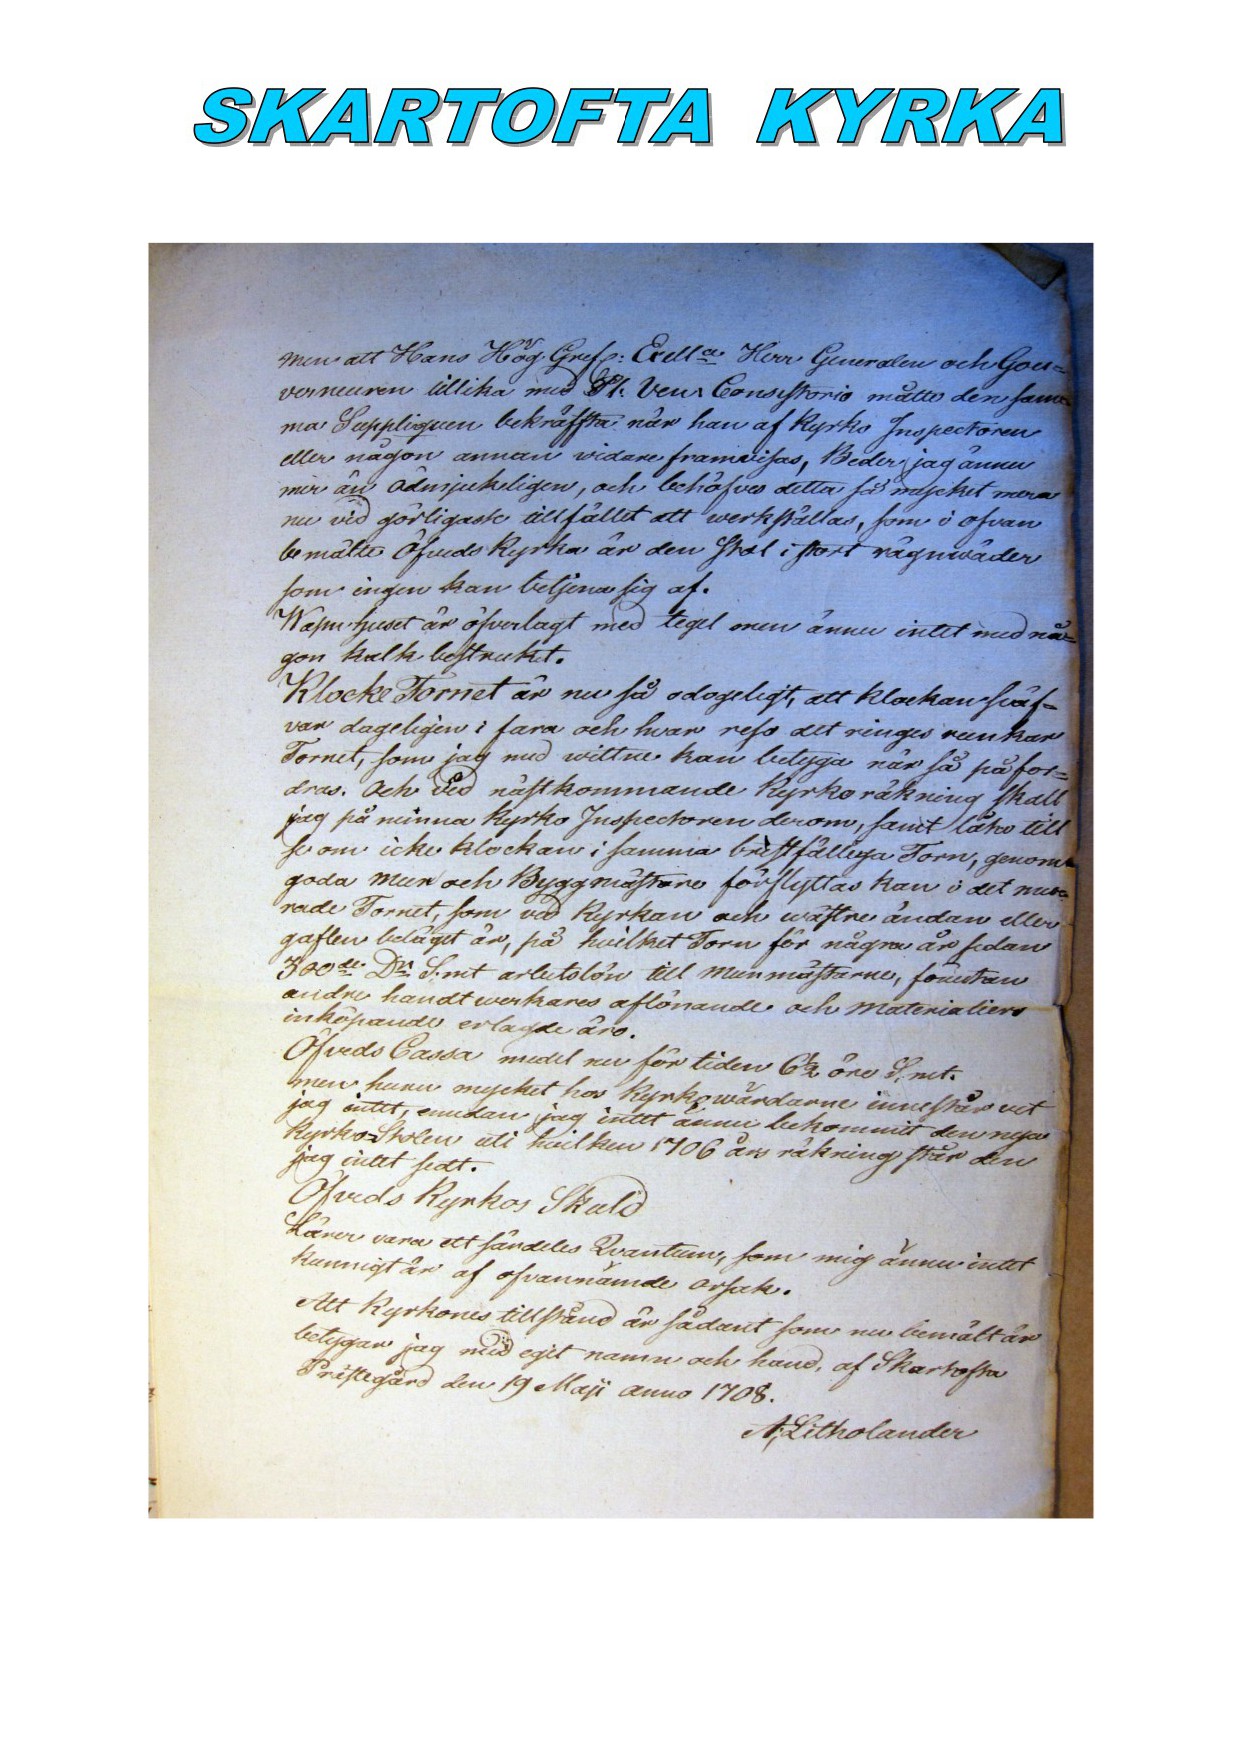 SKARTOFTA KYRKA
men att Hans Hög Grefl: Exell:a Herr Generalen och Gou=
verneuren tillika med Pl: Ven: Consistorio måtte den sam=
ma Suppliquen bekräffta när han af Kyrko Inspectoren
eller någon annan widare framvisas, Beder jag ännu
mer än ödmjukeligen, och behöfves detta så mycket mera
nu vid görligaste tillfället att werkställas, som i ofvan
bemälte Öfveds Kyrka är den stol i stort rägnwäder
som ingen kan betjena sig af.
Wapnhuset är öfverlagt med tegel men ännu intet med nå=
gon kalk bestruket.
Klocke Tornet är nu så odogeligt, att klockan sväf=
var dageligen i fara och hvar reso det ringes runkar
Tornet, som jag med wittne kan betyga när så på for=
dras. Och vid nästkommande Kyrko räkning skall
jag på minna Kyrko Inspectoren derom, samt låta till
se om icke klockan i samma bristfälliga Torn, genom
goda Mur och Byggmästare förflyttas kan i det mu=
rade Tornet, som vid Kyrkan och wästre ändan eller
gaflen beläget är, på hvilket Torn för några år sedan
300de Dr S.mt arbetslön till Murmästarne, förutan
andre handtwerkares aflönande och Materialiers
inköpande erlagde äro.
Öfveds Cassa medel nu för tiden 6½ öre S.mt.
men huru mycket hos Kyrkowärdarne innestår vet
jag intet, emedan jag intet ännu bekommit den nya
Kyrko=Stolen uti hvilken 1706 års räkning står den
jag intet sedt.
Öfveds Kyrkos Skuld
Lärer vara ett särdeles Qvantum, som mig ännu intet
kunnigt är af ofvannämde orsak.
Att Kyrkones tillstånd är sådant som nu bemält är
betygar jag med eget namn och hand, af Skartofta
Prästegård den 19 Maji anno 1708.
A. Litholander